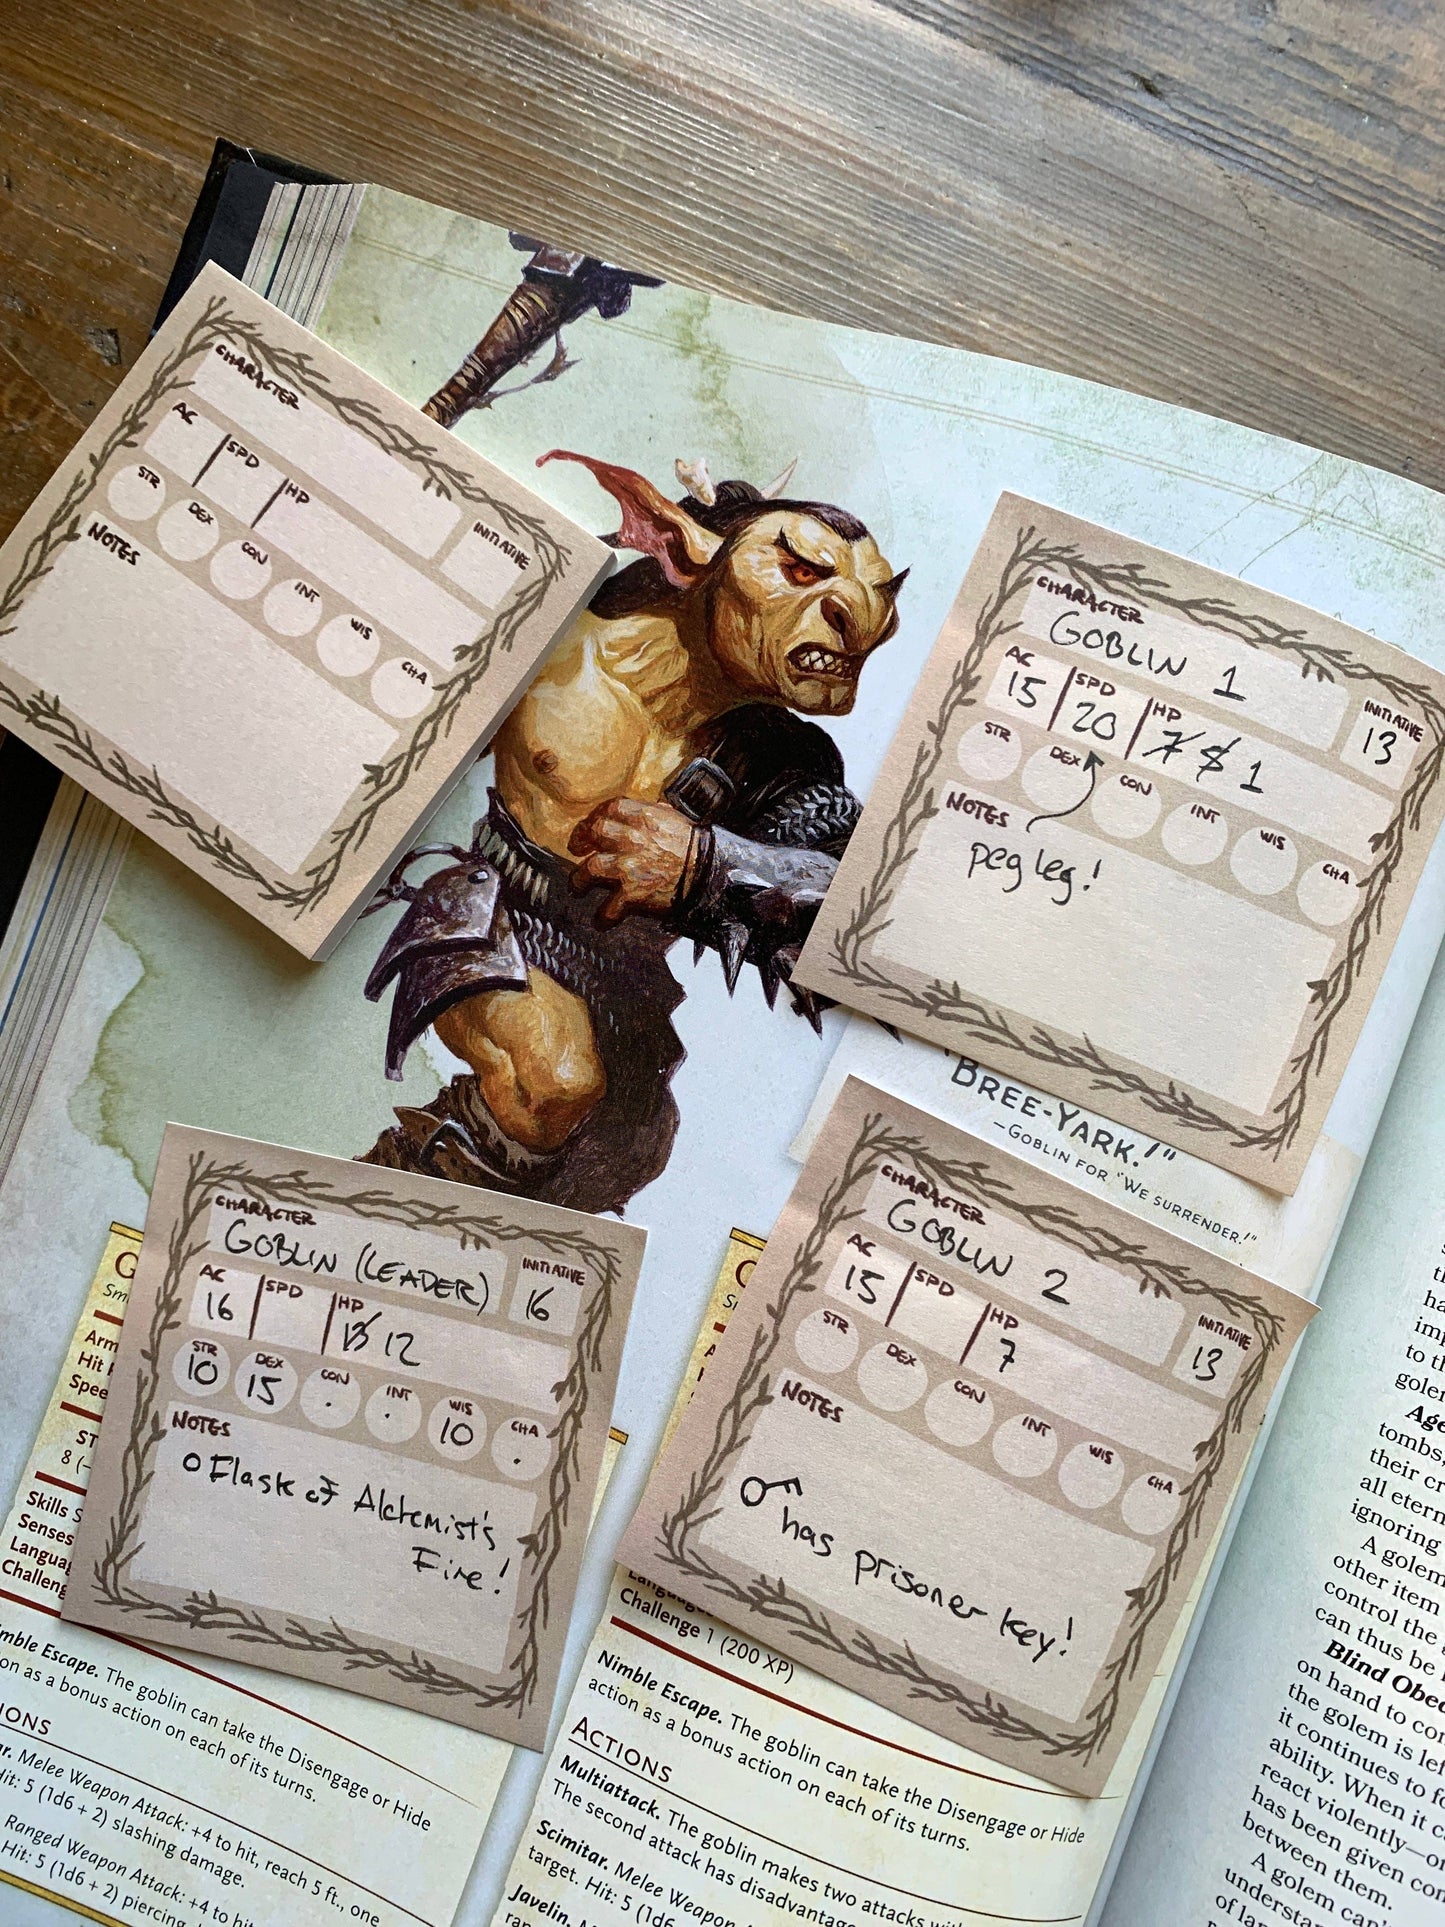 CHARACTER
AC
SPD
HP
INITIATIVE
STR
DEX
CON
INT
WIS
CHA
NOTES
CHARACTER
GOBLIN 1
AC
SPD
HP
INITIATIVE
15
20
7 5 1
13
STR
DEX
CON
INT
WIS
CHA
NOTES
peg leg!
BREE-YARK!"
—GOBLIN FOR "WE SURRENDER!"
CHARACTER
GOBLIN (LEADER)
AC
SPD
HP
INITIATIVE
16
13 12
16
STR
DEX
CON
INT
WIS
CHA
10
15
10
NOTES
Flask of Alchemist's
Fire!
CHARACTER
GOBLIN 2
AC
SPD
HP
INITIATIVE
15
7
13
STR
DEX
CON
INT
WIS
CHA
NOTES
has prisoner key!
Skills
Senses
Challenge
Escape. The goblin can take the Disengage or Hide
on as a bonus action on each of its turns.
Melee Weapon Attack: +4 to hit, reach 5 ft., one
Hit: 5 (1d6 + 2) slashing damage.
Ranged Weapon Attack: +4 to hit
Hit: 5 (1d6 + 2) piercing
Challenge 1 (200 XP)
Nimble Escape. The goblin can take the Disengage or Hide
action as a bonus action on each of its turns.
ACTIONS
Multiattack. The goblin makes two attacks with
The second attack has disadvantage
Scimitar. Melee Weapon
target. Hit: 5 (1d6
Javelin.
to the
golem
Age
tombs,
their
all
ignoring
A golem
other item
control the
can thus be
Blind
on hand to
the golem is
it continues to
ability. When it
react violently—
has been given
between them.
A golem
understand
of